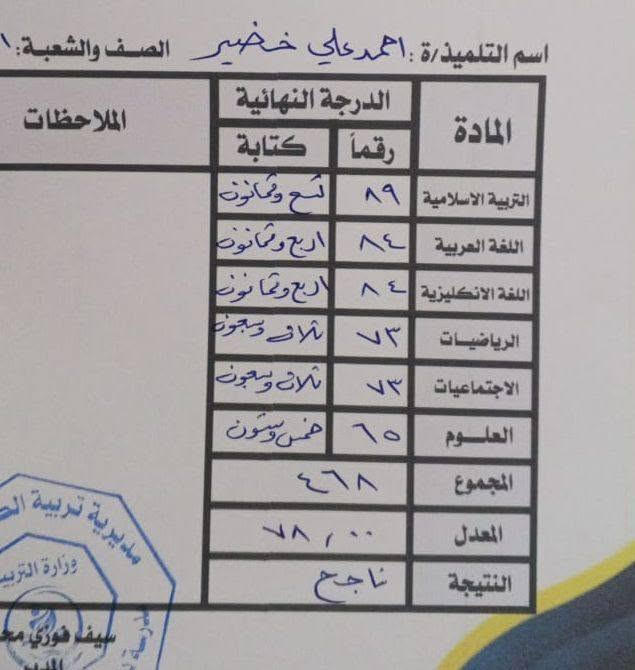 اسم التلميذ/ة : احمد علي خضير الصف والشعبة: ١
المادة الدرجة النهائية الملاحظات
رقماً كتابة
التربية الاسلامية ٨٩ تسع وثمانون
اللغة العربية ٨٤ اربع وثمانون
اللغة الانكليزية ٨٤ اربع وثمانون
الرياضيات ٧٣ ثلاث وسبعون
الاجتماعيات ٧٣ ثلاث وسبعون
العلوم ٦٥ خمس وستون
المجموع ٤٦٨
المعدل ٧٨,٠٠
النتيجة ناجح
مديرية تربية
وزارة التربية
سيف فوزي
المدير